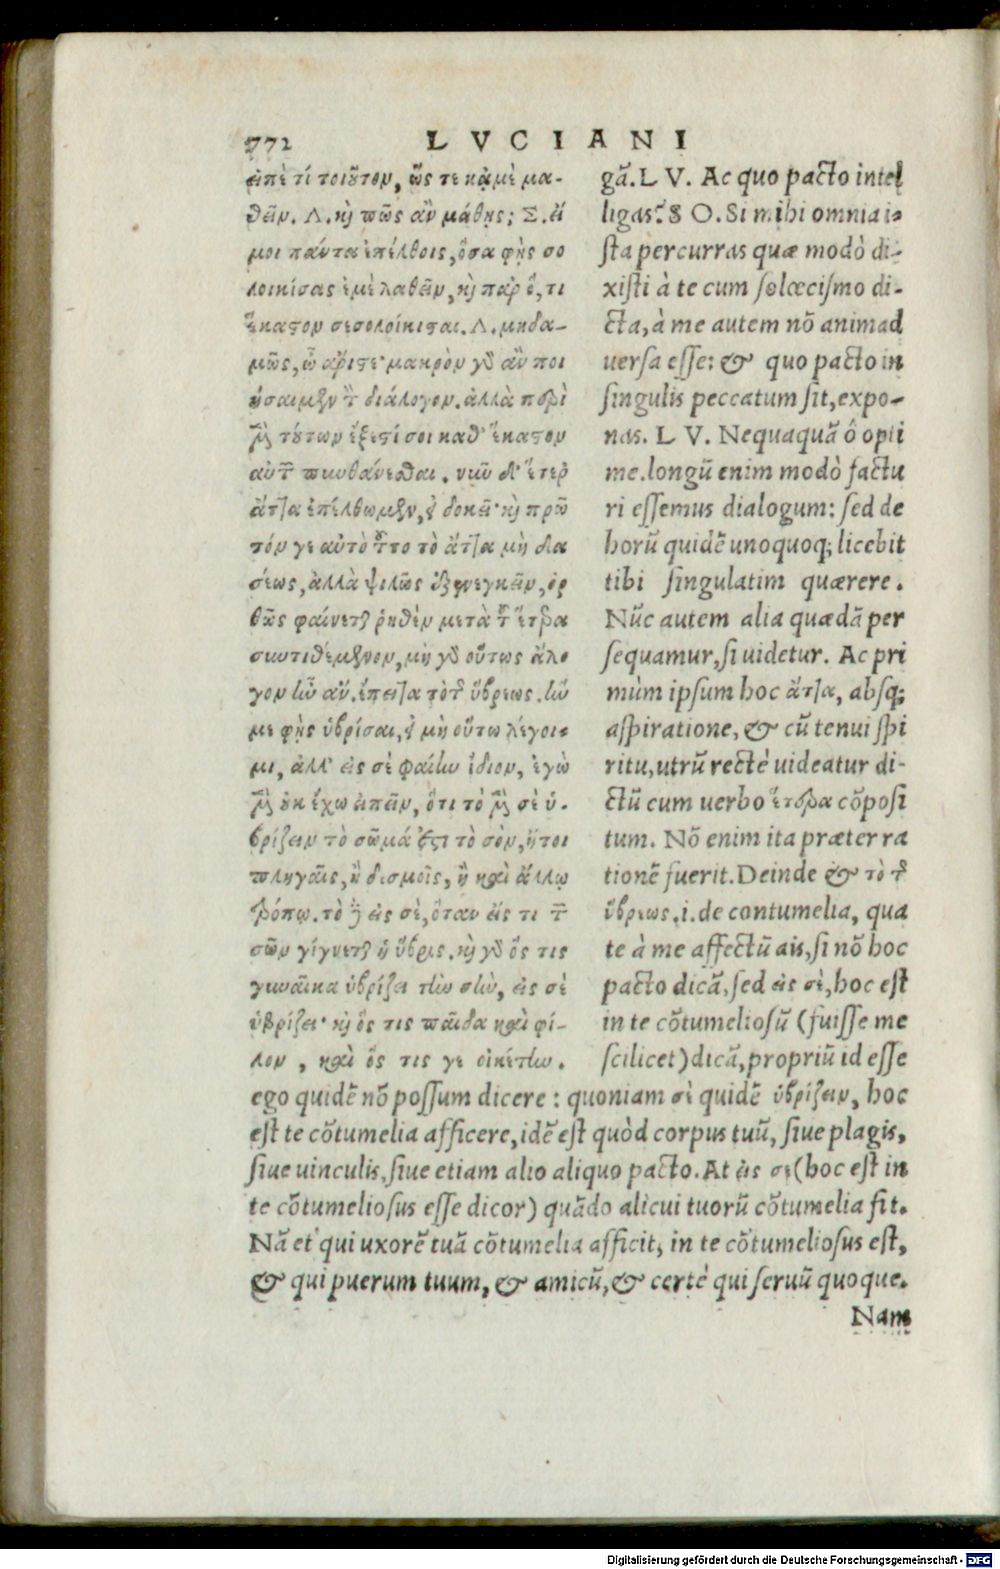 772 LVCIANI
εἰπέ τι τοιοῦτον, ὥς τε κἀμὲ μα-
θεῖν. Λ. κỳ πῶς ἂν μάθῃς; Σ. εἴ
μοι πάντα ἐπέλθοις, ὅσα φῂς σο
λοικίσας ἐμὲ λαθεῖν, κỳ παρ ὅ, τι
ἕκαστον σεσολοίκισαι. Λ. μηδα-
μῶς, ὦ ἄριστε· μακρὸν γὸ ἂν ποι
ήσαιμεν τ διάλογον. ἀλλὰ περὶ
μ τούτων ἔξεστί σοι καθ' ἕκαστον
αὐτ πυνθάνεσθαι. νῦν δ' ἕτερ
ἄττα ἐπέλθωμεν, εἰ δοκεῖ· κỳ πρῶ
τόν γε αὐτὸ τοῦτο τὸ ἄττα μὴ δα
σέως, ἀλλὰ ψιλῶς ἐξενεγκεῖν, ὀρ
θῶς φαίνεται ῥηθὲν μετὰ τ ἕτερα
συντιθέμενον, μὴ γὸ οὕτως ἄλο
γον ἦν ἄν. ἔπειτα τὸ τ ὕβρεως. ἥν
με φῂς ὑβρίσαι, εἰ μὴ οὕτω λέγοι-
μι, ἀλλ' εἰς σὲ φαίην ἴδιον, ἐγὼ
μ οὐκ ἔχω εἰπεῖν, ὅτι τὸ μ σὲ ὑ-
βρίζειν τὸ σῶμά ἐστι τὸ σὸν, ἤτοι
πληγαῖς, ἢ δεσμοῖς, ἢ καὶ ἄλλῳ
τρόπῳ. τὸ δὲ εἰς σὲ, ὅταν εἴς τι τ
σῶν γίγνεται ἡ ὕβρις. κỳ γὸ ὅς τις
γυναῖκα ὑβρίζει τὴν σὴν, εἰς σὲ
ὑβρίζει· κỳ ὅς τις παῖδα καὶ φί-
λον, καὶ ὅς τις γε οἰκέτην.
gā. LV. Ac quo pacto intel
ligas? SO. Si mihi omnia i-
sta percurras quæ modò di-
xisti à te cum solœcismo di-
cta, à me autem nō animad
uersa esse: & quo pacto in
singulis peccatum sit, expo-
nas. LV. Nequaquā ô opti
me. longū enim modò factu
ri essemus dialogum: sed de
horū quidē unoquoq; licebit
tibi singulatim quærere.
Nūc autem alia quædā per
sequamur, si uidetur. Ac pri
mùm ipsum hoc ἄττα, absq;
aspiratione, & cū tenui spi
ritu, utrū rectè uideatur di-
ctū cum uerbo ἕτερα cōposi
tum. Nō enim ita præter ra
tionē fuerit. Deinde & τὸ τ
ὕβρεως. i. de contumelia, qua
te à me affectū ais, si nō hoc
pacto dicā, sed εἰς σὲ, hoc est
in te cōtumeliosū (fuisse me
scilicet) dicā, propriū id esse
ego quidē nō possum dicere: quoniam σὲ quidē ὑβρίζειν, hoc
est te cōtumelia afficere, idē est quòd corpus tuū, siue plagis,
siue uinculis, siue etiam alio aliquo pacto. At εἰς σὲ (hoc est in
te cōtumeliosus esse dicor) quādo alicui tuorū cōtumelia fit.
Nā et qui uxorē tuā cōtumelia afficit, in te cōtumeliosus est,
& qui puerum tuum, & amicū, & certè qui seruū quoque.
Nam
Digitalisierung gefördert durch die Deutsche Forschungsgemeinschaft - DFG